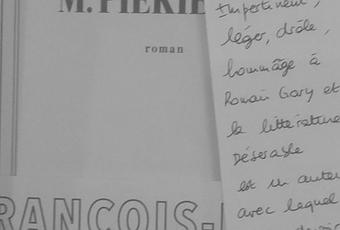 M. PIERRE
roman
FRANÇOIS-
Impertinent,
léger, drôle,
hommage à
Romain Gary et
la littérature
Désérable
est un auteur
avec lequel